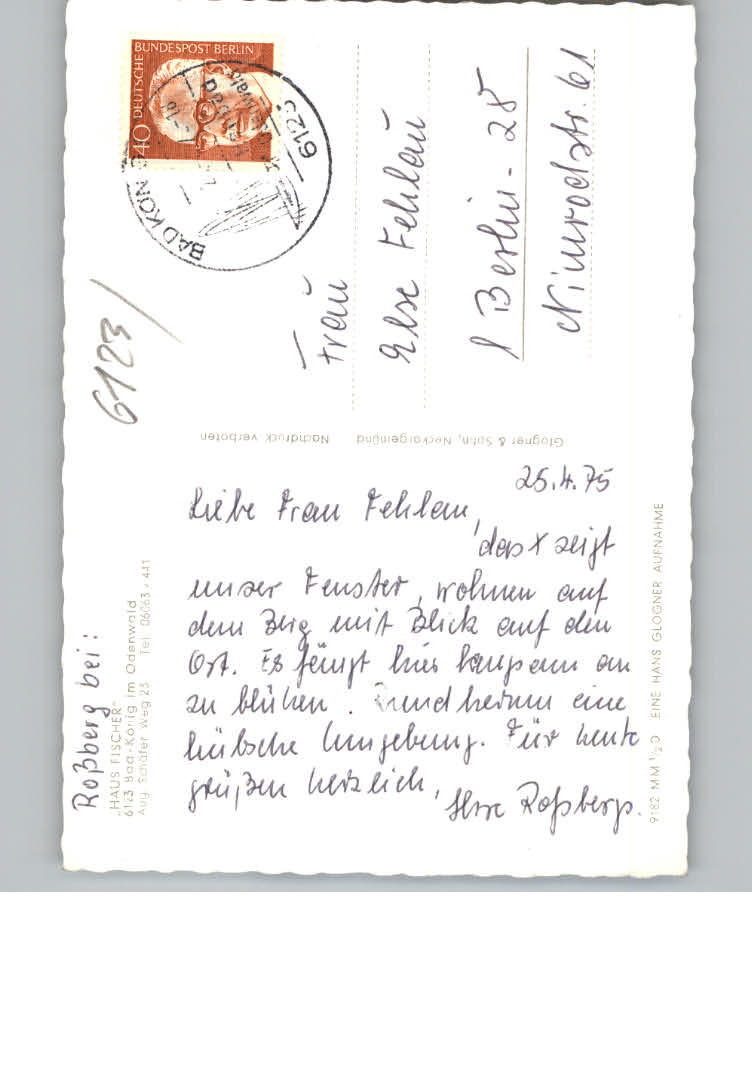 Roßberg bei:
„HAUS FISCHER"
6123 Bad-König im Odenwald
Aug. Schäfer Weg 23 Tel. 06063 / 441
25.4.75
Liebe Frau Fehlau,
das X zeigt
unser Fenster, wohnen auf
dem Berg mit Blick auf den
Ort. Es fängt hier langsam an
zu blühen. Rundherum eine
hübsche Umgebung. Für heute
grüßen herzlich,
Ihre Roßbergs.
9182 MM ½ O EINE HANS GLOGNER AUFNAHME
Glogner & Sohn, Neckargemünd Nachdruck verboten
6123
DEUTSCHE BUNDESPOST BERLIN
40
6123 BAD KÖNIG
Frau
Else Fehlau
1 Berlin - 28
Nimrodstr. 61